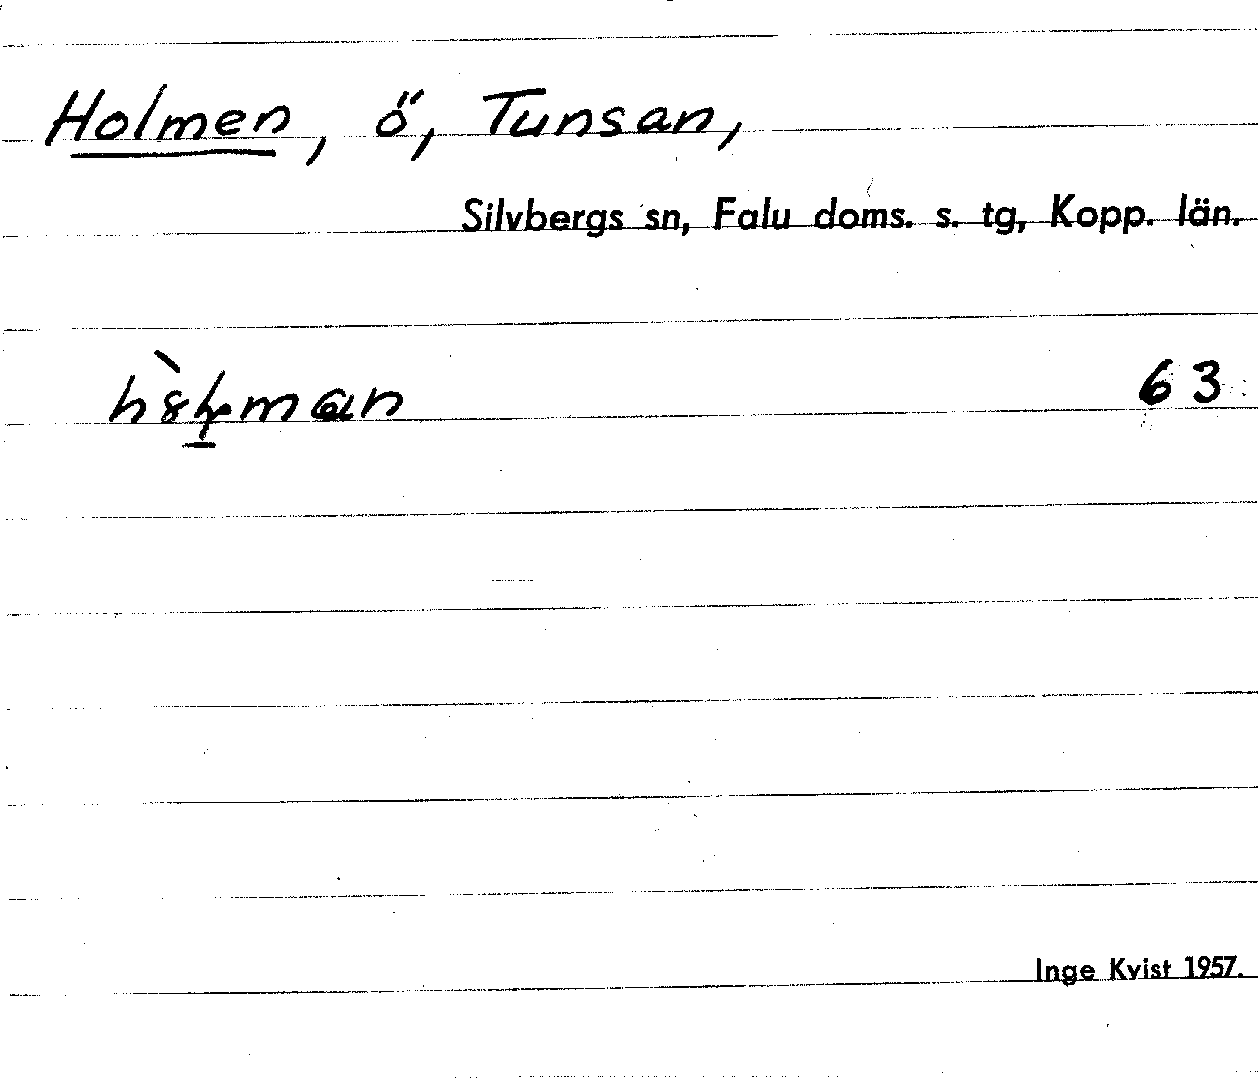 Holmen, ö, Tunsan,
Silvbergs sn, Falu doms. s. tg, Kopp. län.
63
Inge Kvist 1957.